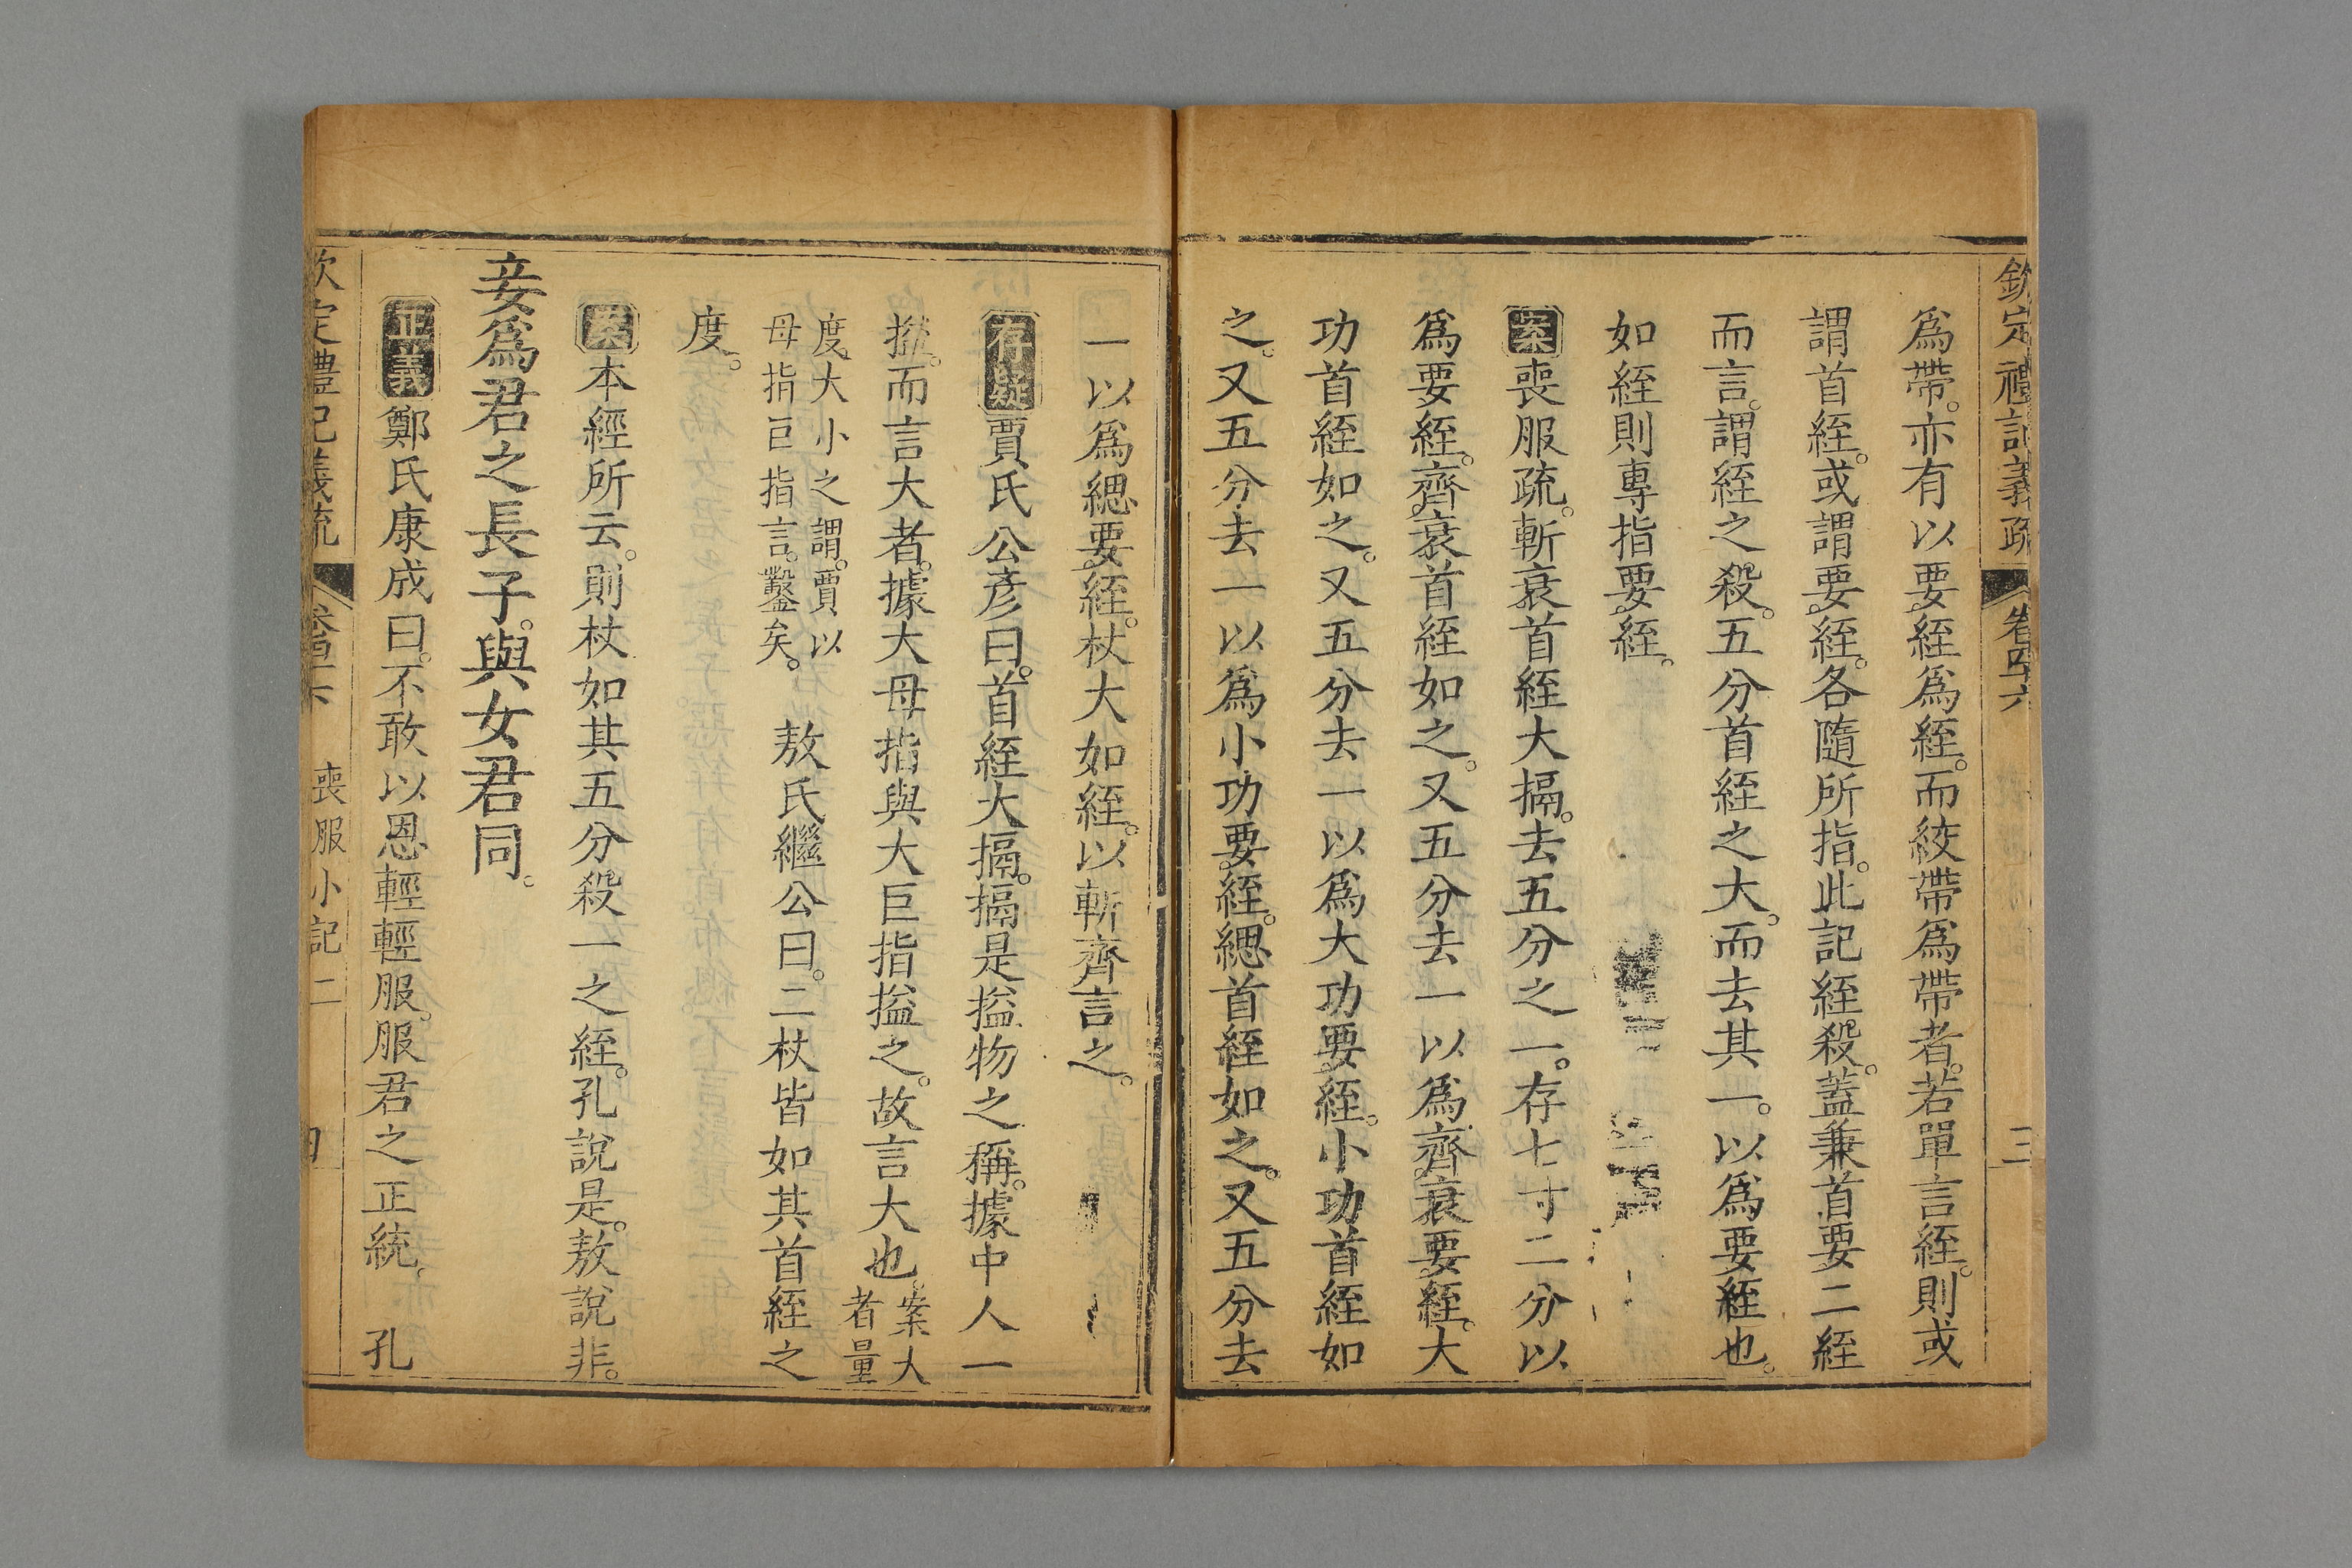 欽定禮記義疏 卷四十六 三
爲帶。亦有以要絰爲絰。而絞帶爲帶者。若單言絰。則或
謂首絰。或謂要絰。各隨所指。此記絰殺。蓋兼首要二絰
而言。謂絰之殺。五分首絰之大。而去其一。以爲要絰也。
如絰則專指要絰。
案喪服疏。斬衰首絰大搹。去五分之一。存七寸二分以
爲要絰。齊衰首絰如之。又五分去一以爲齊衰要絰。大
功首絰如之。又五分去一以爲大功要絰。小功首絰如
之。又五分去一以爲小功要絰。緦首絰如之。又五分去
一以爲緦要絰。杖大如絰。以斬齊言之。
存疑賈氏公彥曰。首絰大搹。搹是搤物之稱。據中人一
搤。而言大者。據大母指與大巨指搤之。故言大也。案大
者量
度。大小之謂。賈以
母指巨指言。鑿矣。 敖氏繼公曰。二杖皆如其首絰之
度。
案本經所云。則杖如其五分殺一之絰。孔說是。敖說非。
妾爲君之長子。與女君同。
正義鄭氏康成曰。不敢以恩輕輕服。服君之正統。 孔
欽定禮記義疏 喪服小記二